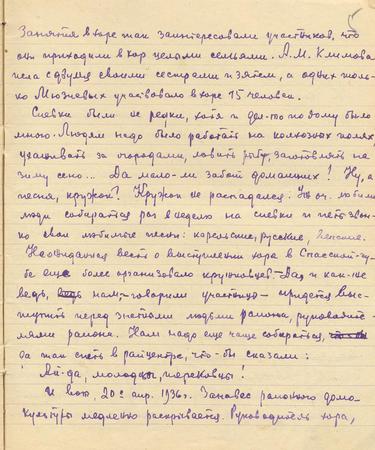 5
Занятия в хоре так заинтересовали участников, что
они приходили в хор целыми семьями. А.М. Климова
пела с двумя своими сестрами и зятем, а одних толь-
ко Мюзиевых участвовало в хоре 15 человек.
Спевки были не редки, хотя и дел-то по дому было
много. Людям надо было работать на колхозных полях,
ухаживать за огородами, ловить рыбу, заготовлять на
зиму сено... Да мало-ли забот домашних! Ну, а
песня, кружок? Кружок не распадался. любили
люди собираться раз в неделю на спевки и петь звон-
ко свои любимые песни: карельские, русские, вепские.
Неожиданная весть о выступлении хора в Спасской-гу-
бе еще более организовало кружковцев. Да, и как-же
ведь, нам,- говорили участницы - придется выс-
тупить перед знатными людьми района, руководите-
лями района. Нам надо еще чаще собираться,
да так спеть в райцентре, что-бы сказали:
Ай-да, молодцы,
И вот, 20 апр. 1936г. Занавес районного дома-
культуры медленно раскрывается. Руководитель хора,